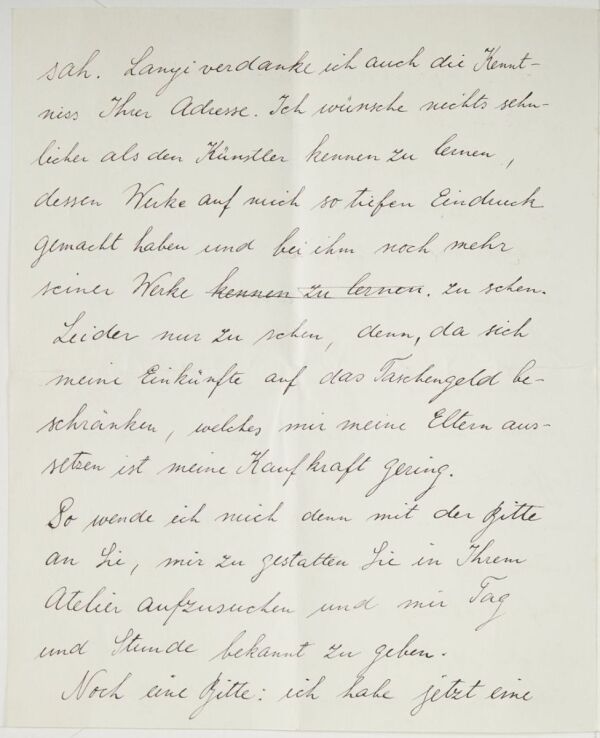 sah. Lanyi verdanke ich auch die Kennt-
niss Ihrer Adresse. Ich wünsche nichts sehn-
licher als den Künstler kennen zu lernen,
dessen Werke auf mich so tiefen Eindruck
gemacht haben und bei ihm noch mehr
seiner Werke kennen zu lernen. zu sehen.
Leider nur zu sehen, denn, da sich
meine Einkünfte auf das Taschengeld be-
schränken, welches mir meine Eltern aus-
setzen ist meine Kaufkraft gering.
So wende ich mich denn mit der Bitte
an Sie, mir zu gestatten Sie in Ihrem
Atelier aufzusuchen und mir Tag
und Stunde bekannt zu geben.
Noch eine Bitte: ich habe jetzt eine